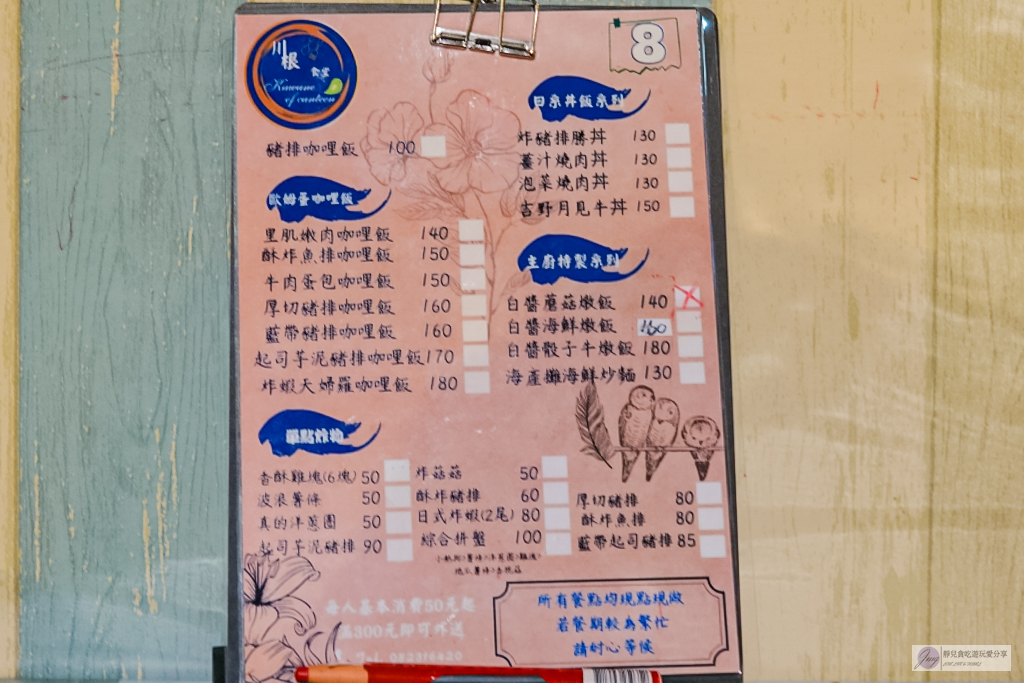 川根
食堂
Kawane
of canteen
8
豬排咖哩飯 100
歐姆蛋咖哩飯
里肌嫩肉咖哩飯 140
酥炸魚排咖哩飯 150
牛肉蛋包咖哩飯 150
厚切豬排咖哩飯 160
藍帶豬排咖哩飯 160
起司芋泥豬排咖哩飯 170
炸蝦天婦羅咖哩飯 180
日系丼飯系列
炸豬排勝丼 130
薑汁燒肉丼 130
泡菜燒肉丼 130
吉野月見牛丼 150
主廚特製系列
白醬蘑菇燉飯 140
白醬海鮮燉飯 160
白醬骰子牛燉飯 180
海產攤海鮮炒麵 130
單點炸物
香酥雞塊(6塊) 50
波浪薯條 50
真的洋蔥圈 50
起司芋泥豬排 90
炸菇菇 50
酥炸豬排 60
日式炸蝦(2尾) 80
綜合拼盤 100
厚切豬排 80
酥炸魚排 80
藍帶起司豬排 85
每人基本消費50元起
滿300元即可外送
所有餐點均現點現做
若餐期較為繁忙
請耐心等候
靜兒貪吃遊玩愛分享